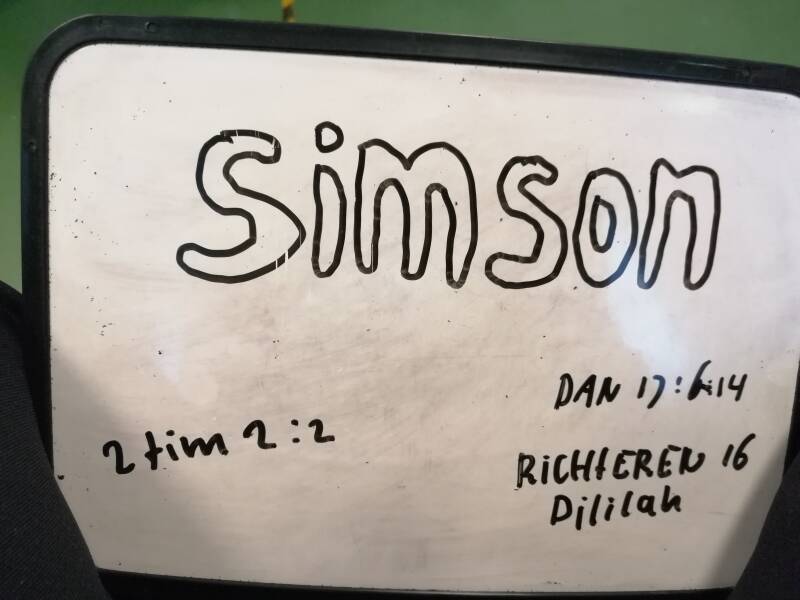 Simson
DAN 17:6:14
2 tim 2:2
RiCHtEREN 16
Dililah